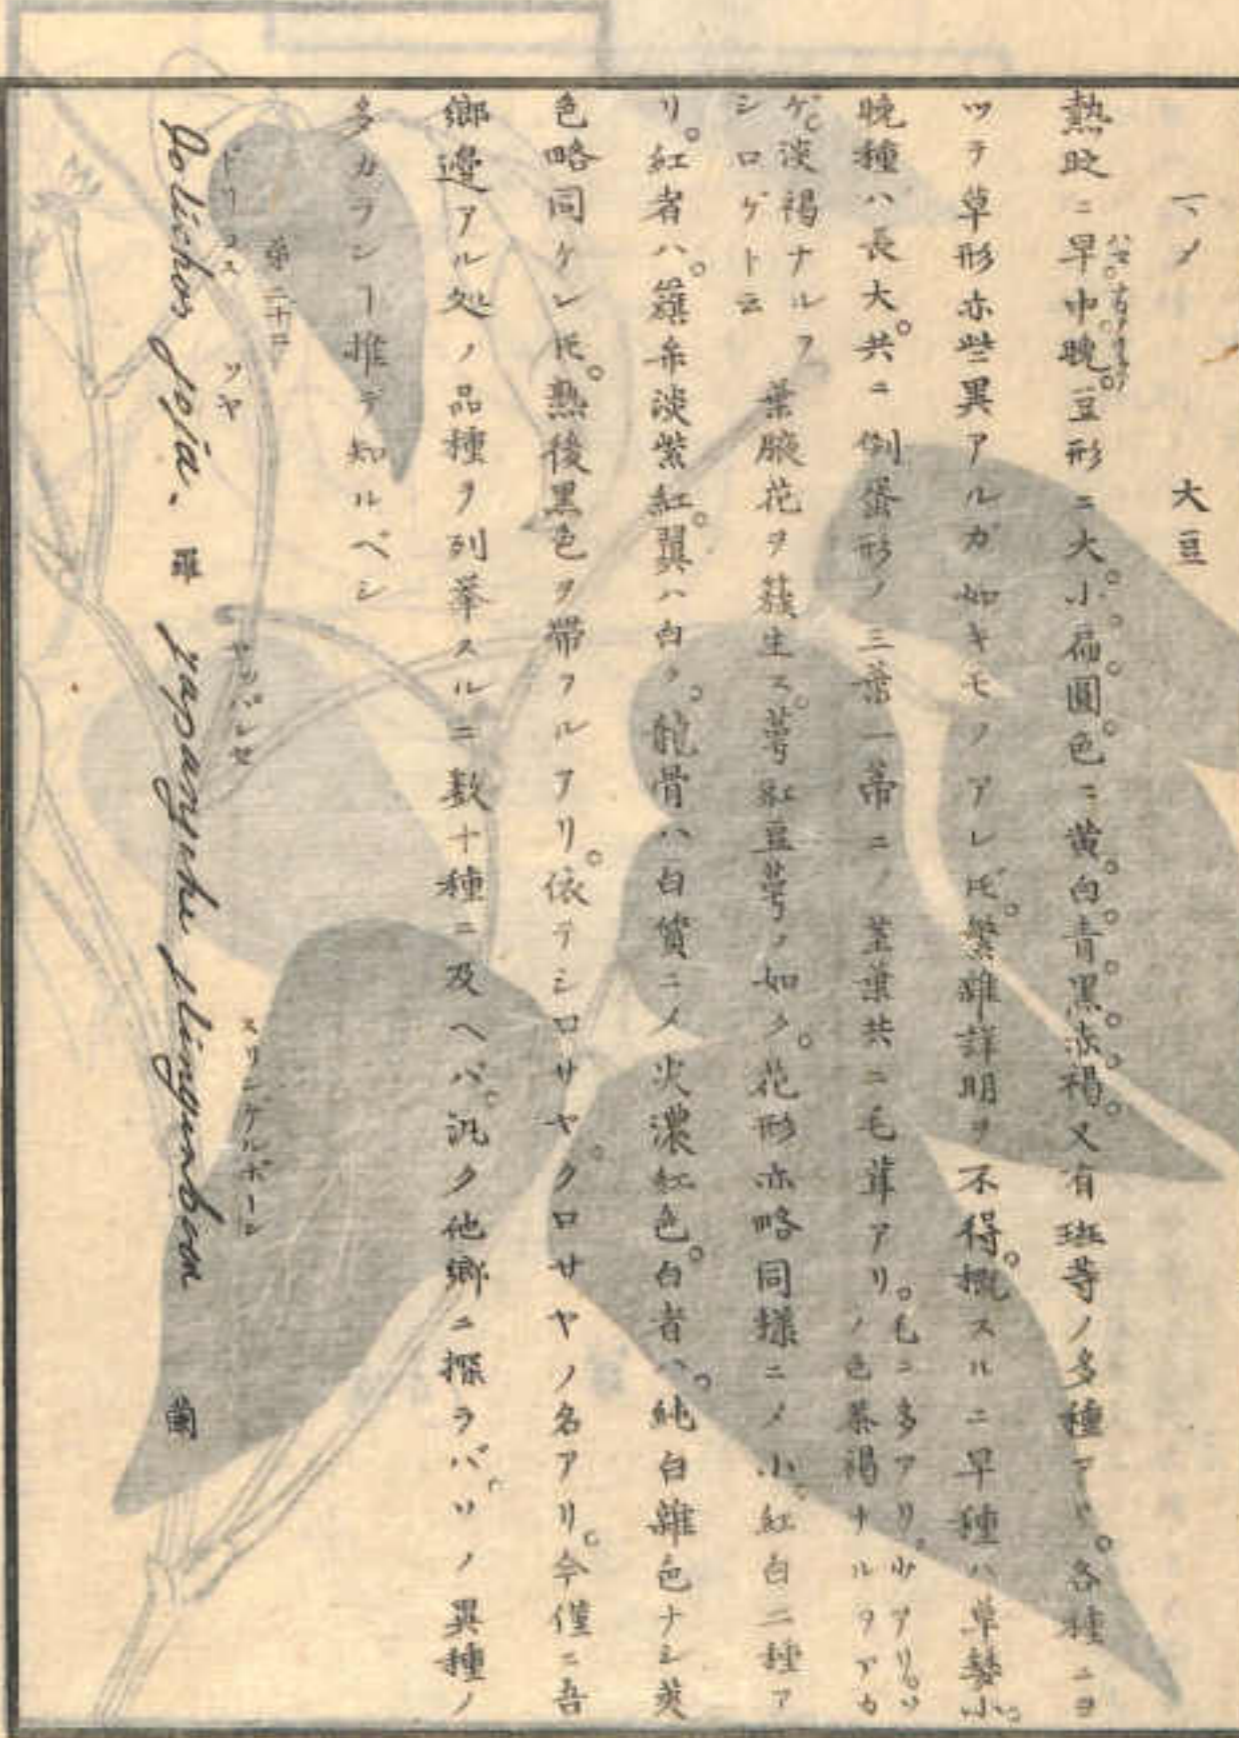 マメ 大豆
熟時ニ早。中。晩。豆形ニ大。小。扁。圓。色ニ黄。白。青。黒。赤。褐。又有斑等ノ多種アリ。各種ニヨ
ツテ草形亦些異アルガ如キモノアレ𪜈。繁雑詳明ヲ不得。概スルニ早種ハ草勢小。
晩種ハ長大。共ニ倒蛋形ノ三葉一蒂ニ乄莖葉共ニ毛茸アリ。毛ニ多アリ。少アリ。ソノ色茶褐ナルヲアカ
ゲ。淡褐ナルヲシロゲト云 葉腋花ヲ簇生ス。萼紅豆萼ノ如ク。花形亦略同様ニ乄小。紅白二種ア
リ。紅者ハ。籏弁淡紫紅。翼ハ白ク。舩骨ハ白質ニ乄尖濃紅色。白者ハ。純白雜色ナシ莢
色略同ケレ𪜈。熟後黒色ヲ帶フルアリ。依テシロサヤ。クロサヤノ名アリ。今僅ニ吾
郷邊アル処ノ品種ヲ列挙スルニ数十種ニ及ヘバ。汎ク他郷ニ探ラバ。ソノ異種ノ
多カランヿ推テ知ルベシ
第二十
ドリコス ソヤ ヤッパンセ スリンゲルボーン
Dolichos soja. 羅 japansche slingerboon 蘭